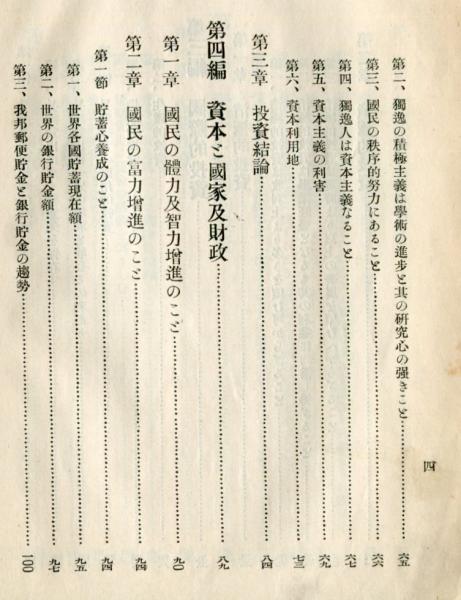 第二、獨逸の積極主義は學術の進步と其の硏究心の强きこと…………六五
第三、國民の秩序的努力にあること…………六六
第四、獨逸人は資本主義なること…………六七
第五、資本主義の利害…………六九
第六、資本利用地…………七三
第三章 投資結論…………八四
第四編 資本と國家及財政…………八九
第一章 國民の體力及智力增進のこと…………九〇
第二章 國民の富力增進のこと…………九四
第一節 貯蓄心養成のこと…………九四
第一、世界各國貯蓄現在額…………九五
第二、世界の銀行貯金額…………九七
第三、我邦郵便貯金と銀行貯金の趨勢…………100
四